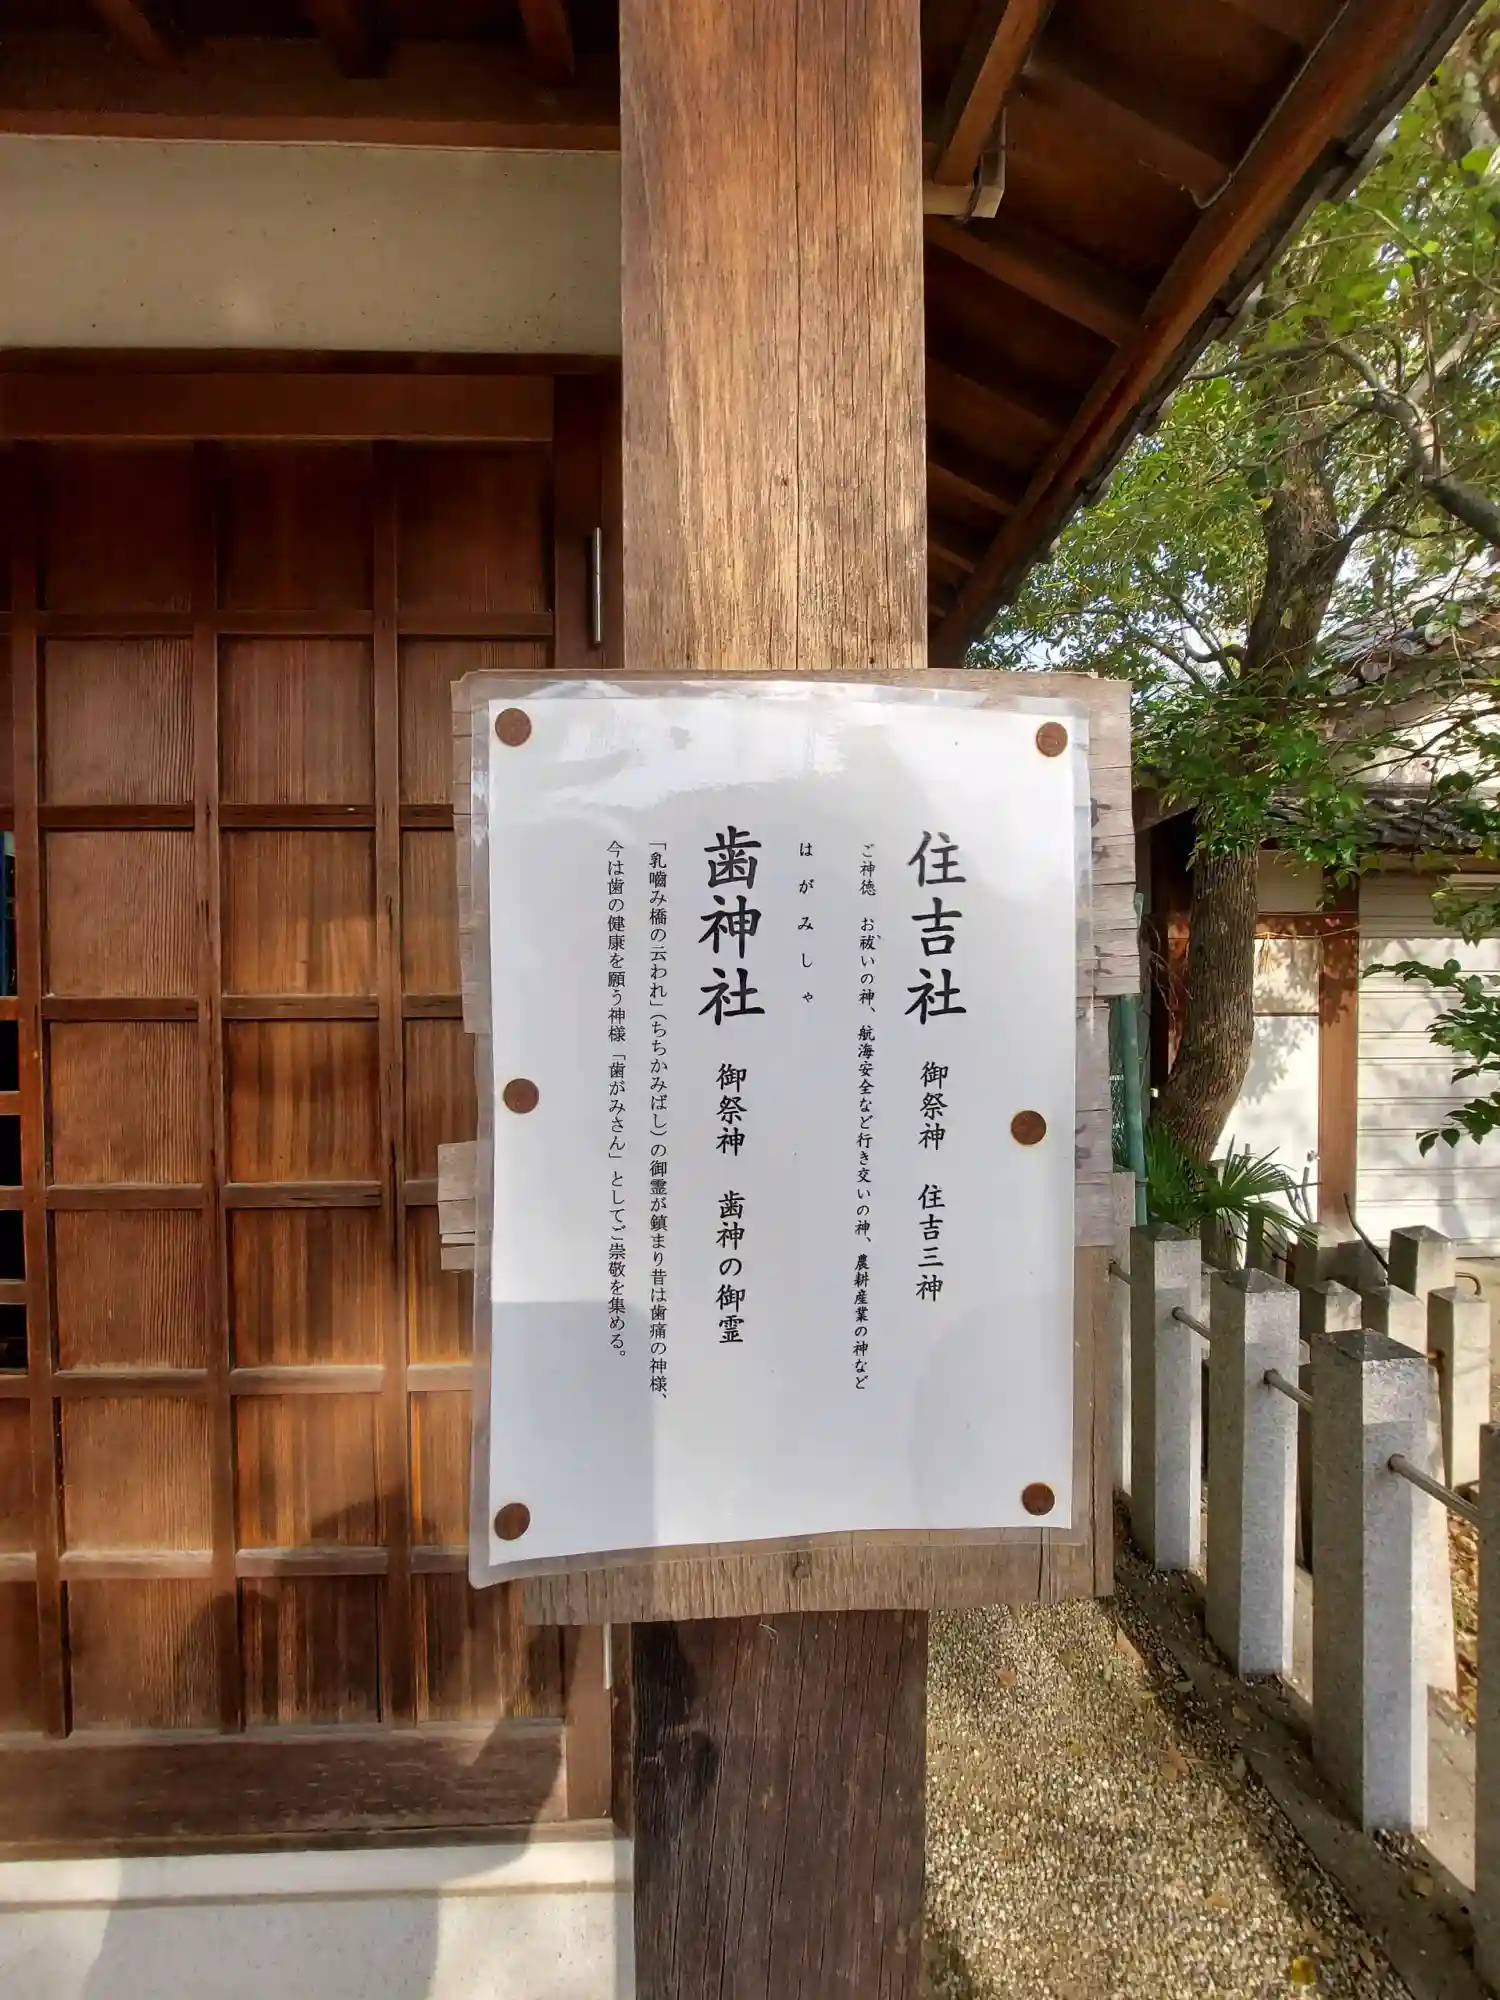 住吉社 御祭神 住吉三神
ご神徳 お祓いの神、航海安全など行き交いの神、農耕産業の神など
はがみしゃ
歯神社 御祭神 歯神の御霊
「乳嚙み橋の云われ」(ちちかみばし)の御霊が鎮まり昔は歯痛の神様、
今は歯の健康を願う神様「歯がみさん」としてご崇敬を集める。